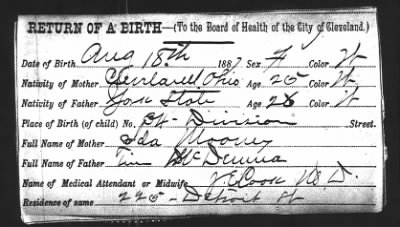 RETURN OF A BIRTH—(To the Board of Health of the City of Cleveland.)
Date of Birth Aug 18th 1887 Sex F Color W
Nativity of Mother Cleveland Ohio Age 25 Color W
Nativity of Father York State Age 26 Color W
Place of Birth (of child) No. Division Street.
Full Name of Mother Ida Mooney
Full Name of Father
Name of Medical Attendant or Midwife J E Cook M. D.
Residence of same 225 - Detroit St